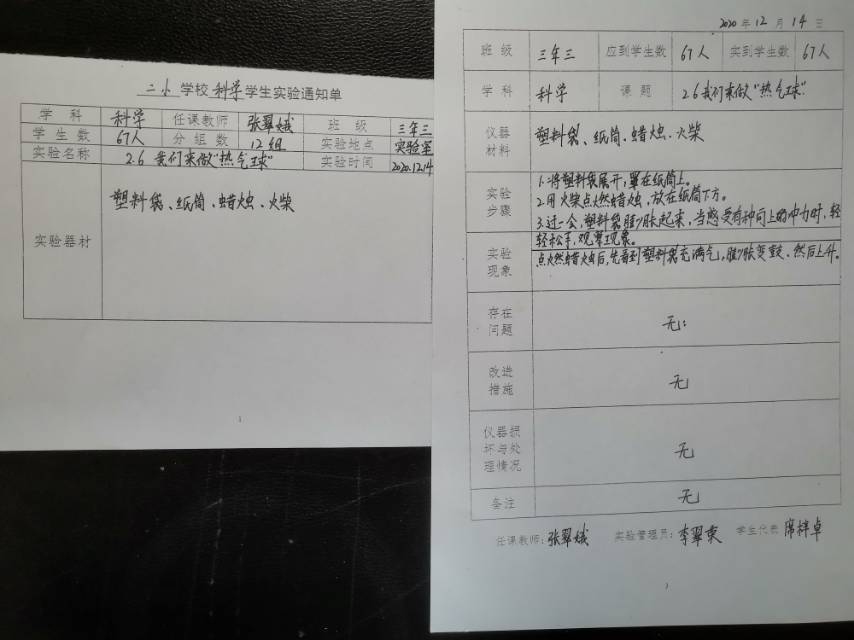 二小学校科学学生实验通知单
学科 科学 任课教师 张翠娥 班级 三年三
学生数 67人 分组数 12组 实验地点 实验室
实验名称 2.6 我们来做"热气球" 实验时间 2020.12.14
实验器材 塑料袋、纸筒、蜡烛、火柴
1
2020年12月14日
班级 三年三 应到学生数 67人 实到学生数 67人
学科 科学 课题 2.6我们来做"热气球"
仪器
材料
塑料袋、纸筒、蜡烛、火柴
实验
步骤
1.将塑料袋展开,罩在纸筒上。
2.用火柴点燃蜡烛,放在纸筒下方。
3.过一会,塑料袋膨胀起来,当感受有种向上的冲力时,轻
轻松手,观察现象。
实验
现象
点燃蜡烛后,先看到塑料袋充满气,膨胀变鼓、然后上升。
存在
问题
无:
改进
措施
无
仪器损
坏与处
理情况
无
备注 无
任课教师:张翠娥 实验管理员:李翠东 学生代表 席梓卓